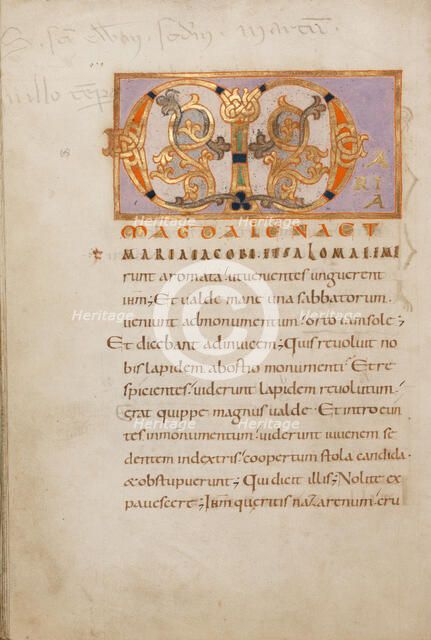 M
ARIA
MAGDALENA ET
MARIA IACOBI. ET SALOMAE. EME
runt aromata; ut venientes unguerent
ihm; Et valde mane una sabbatorum.
veniunt ad monumentum; orto iam sole;
Et dicebant adinvicem; Quis revolvit no
bis lapidem. abostio monumenti; Et re
spicientes; viderunt lapidem revolutum;
erat quippe magnus valde; Et introeun
tes inmonumentum; viderunt iuvenem se
dentem indextris; coopertum stola candida.
& obstupuerunt; Qui dicit illis; Nolite ex
pavescere; Ihm queritis nazarenum; cru
Heritage
Images